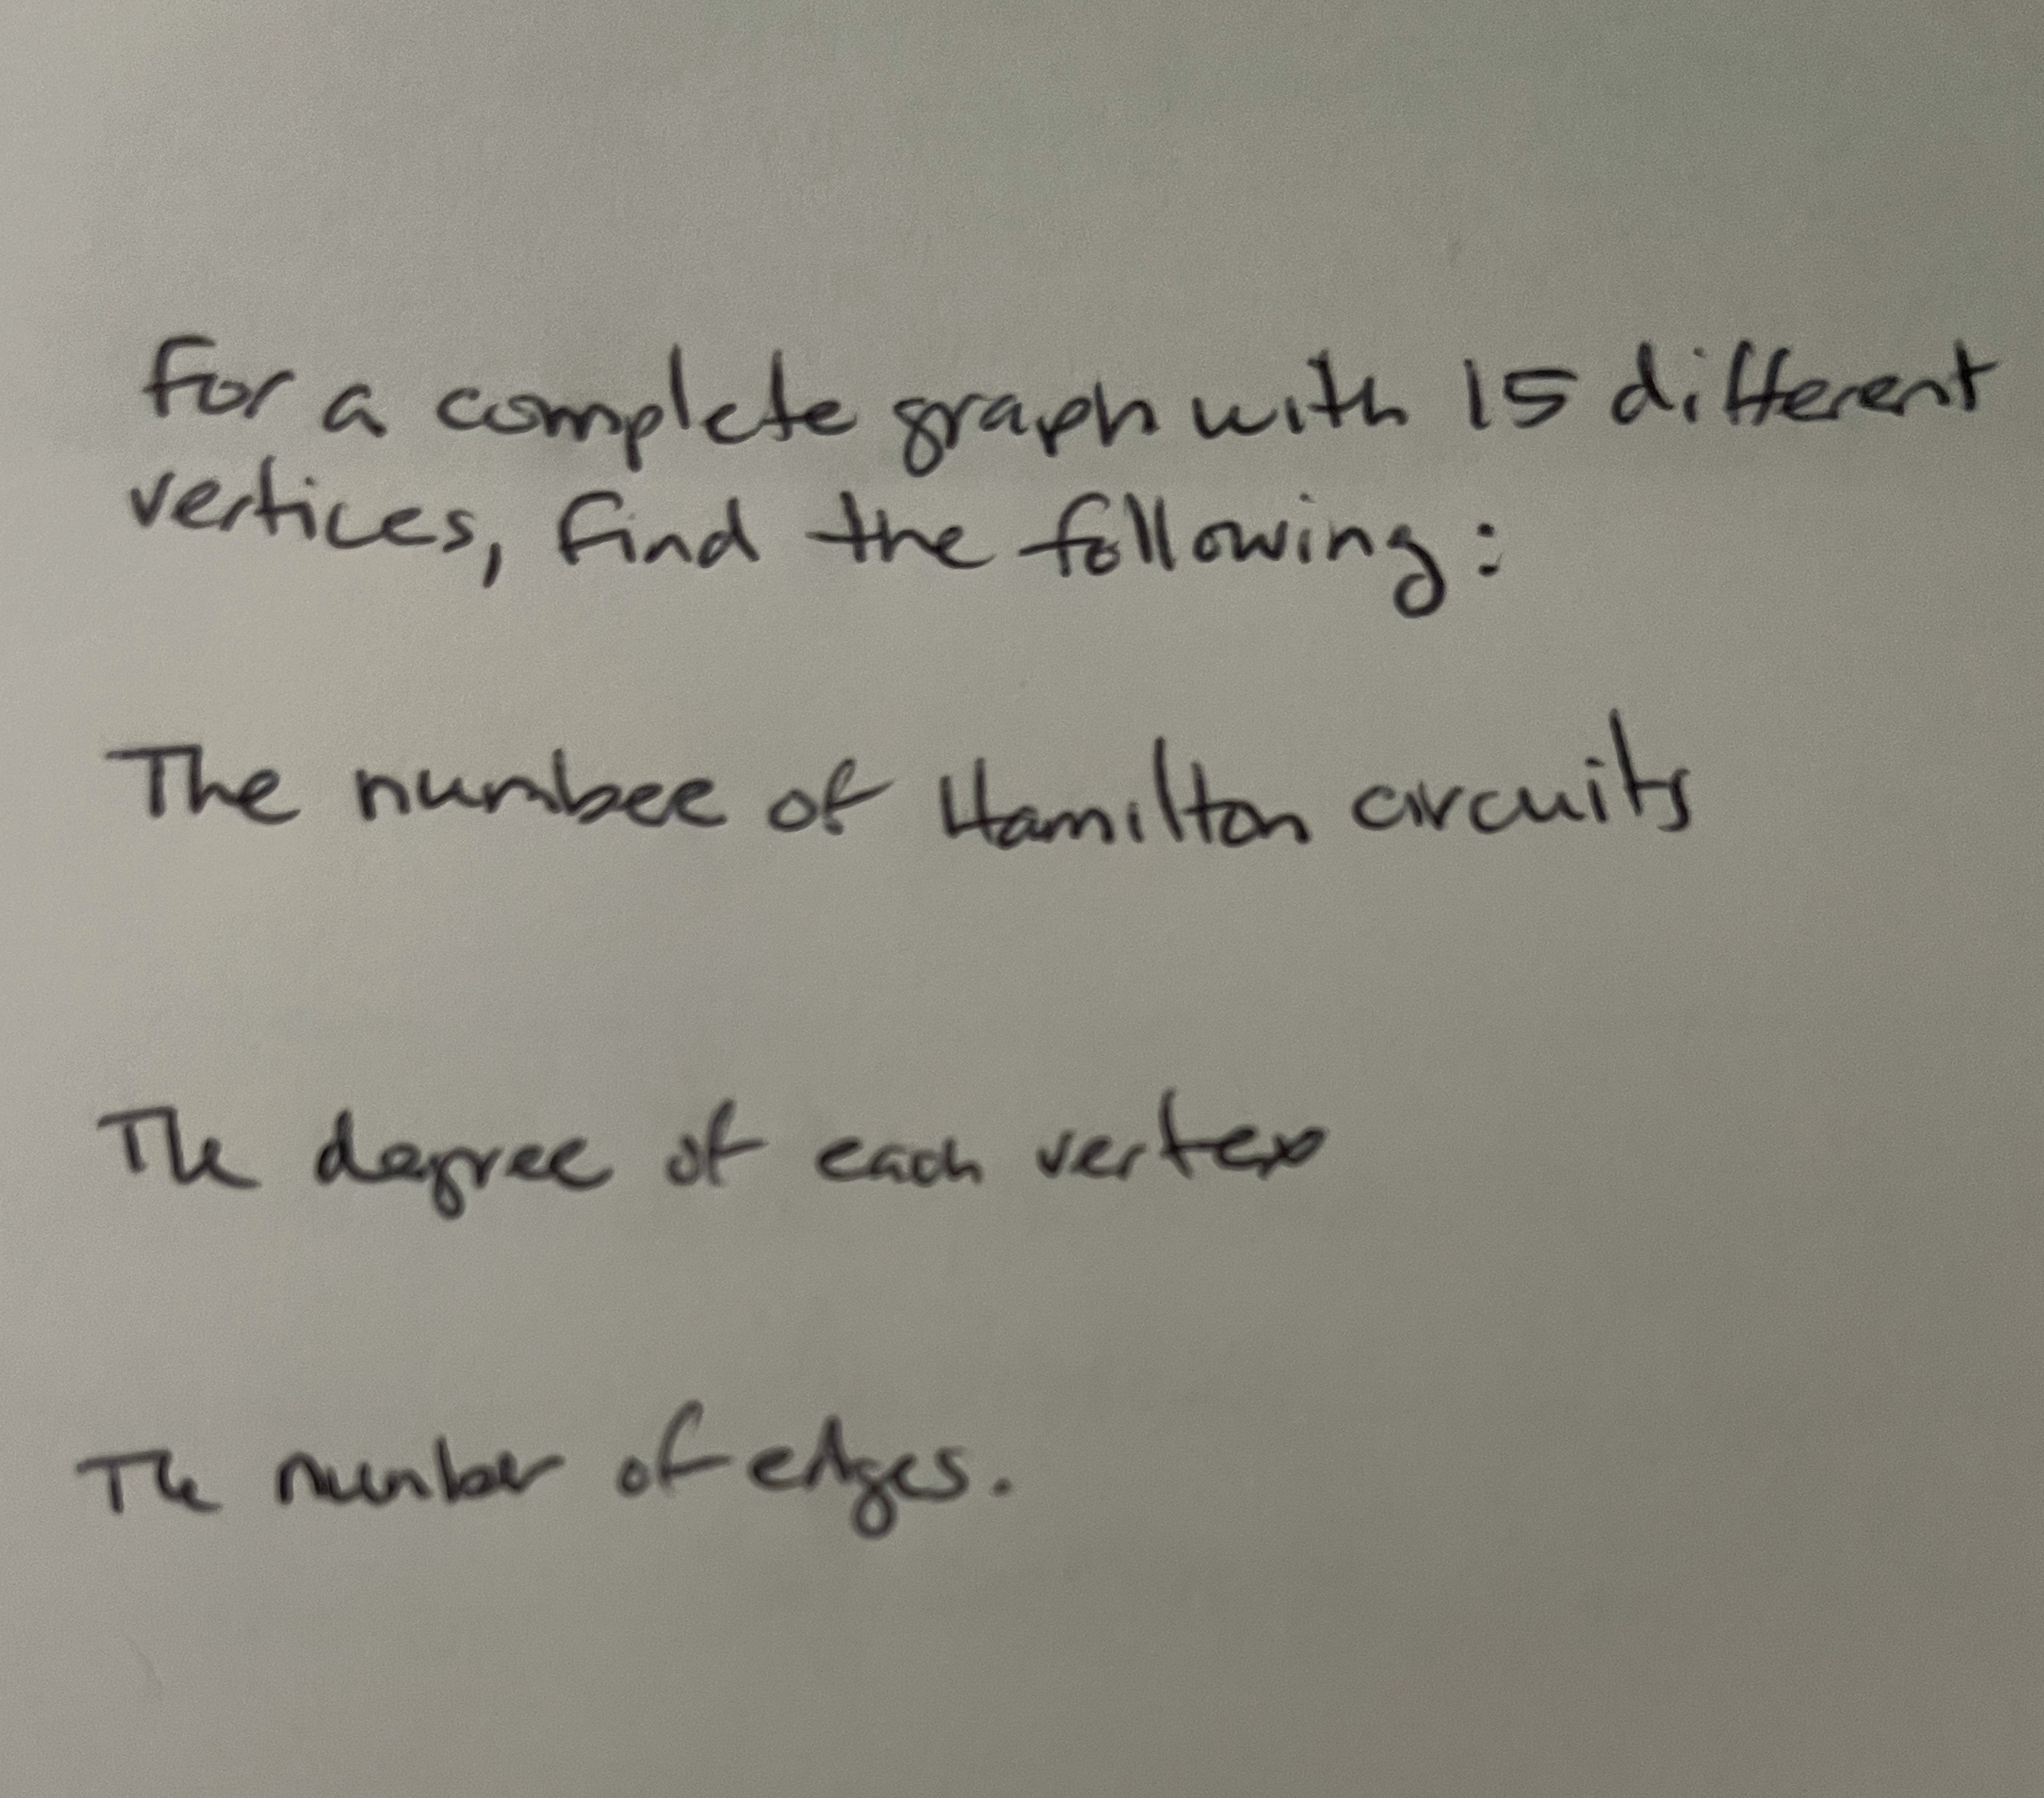 For a complete graph with 15 different
vertices, find the following:
The numbee of Hamilton circuits
The degree of each vertex
The number of edges.